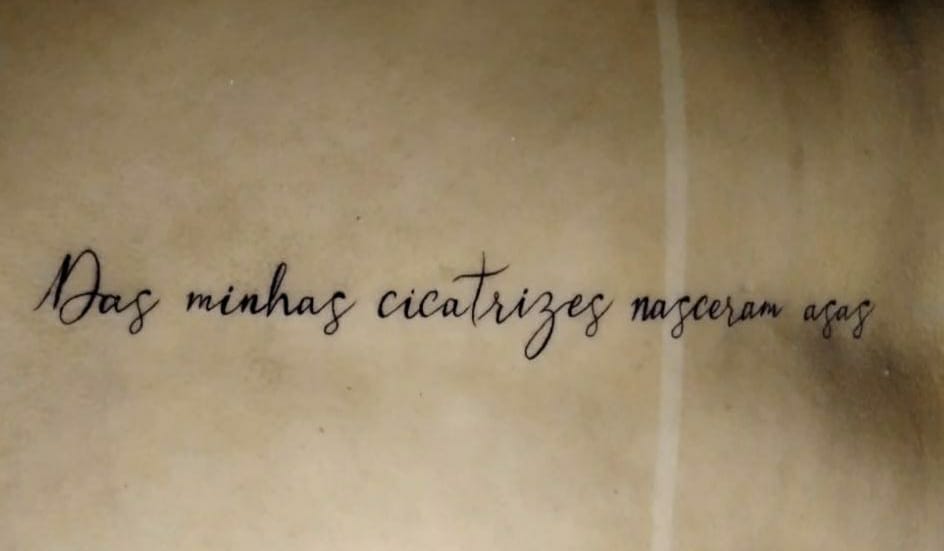 Das minhas cicatrizes nasceram asas